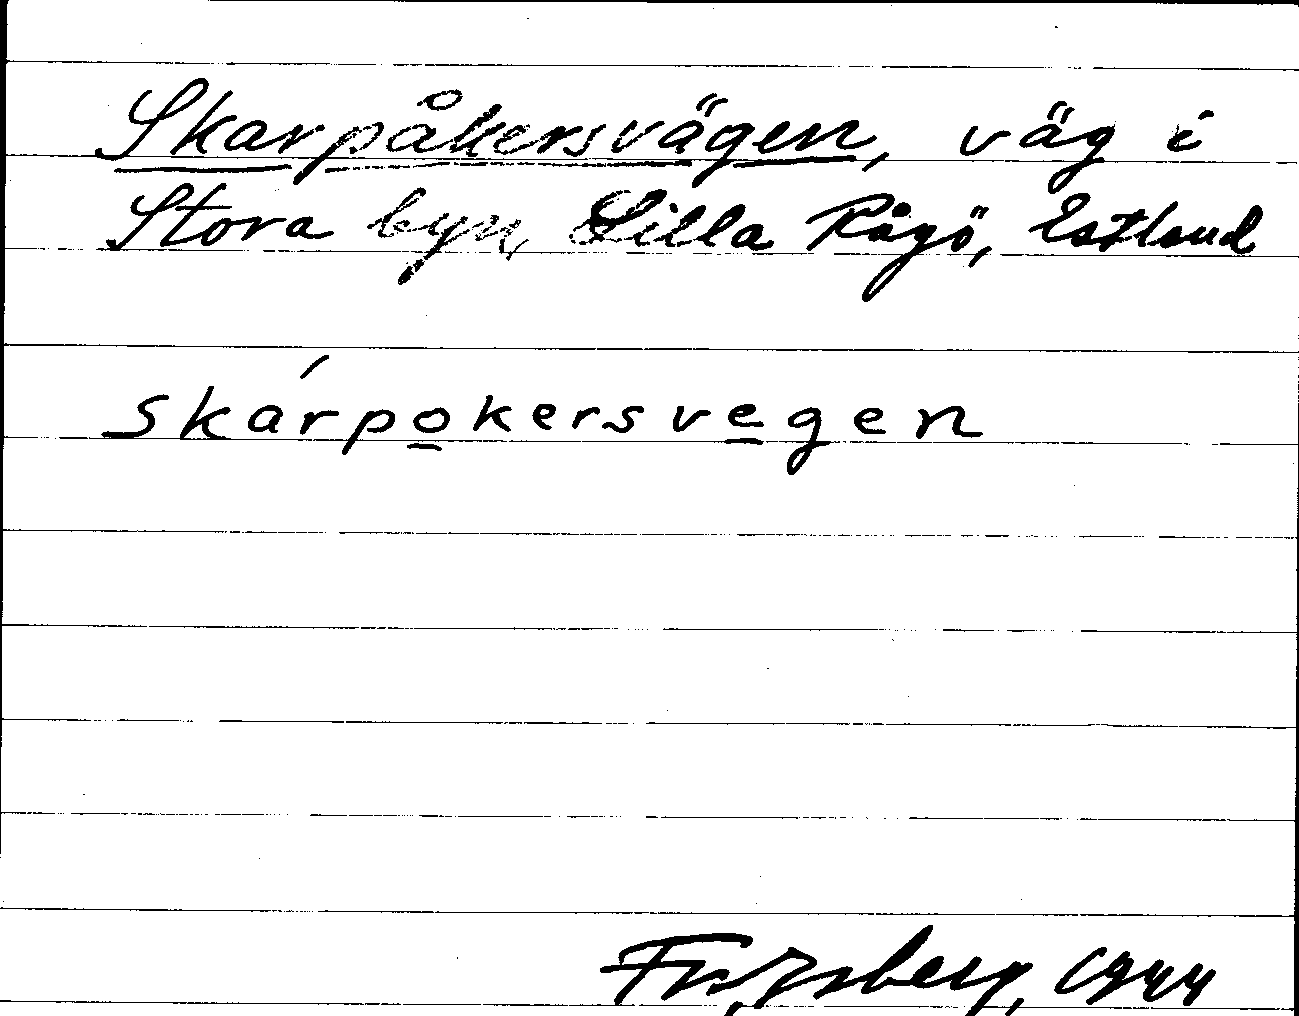 Skarpåkersvägen, väg i
Stora byn, Lilla Rågö, Estland
skárpo̲kersve̲gen
1944